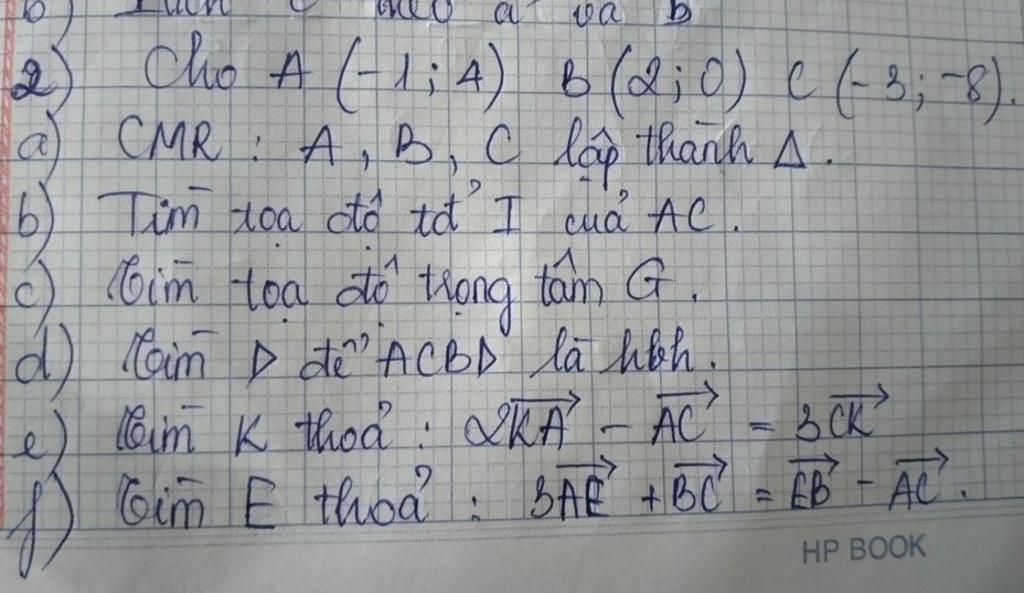 b) c theo a và b
2) Cho A (-1; 4) B (2; 0) C (-3; -8).
a) CMR : A, B, C lập thành Δ.
b) Tìm tọa độ tđ' I của AC.
c) Tìm tọa độ trọng tâm G.
d) Tìm D để ACBD là hbh.
e) Tìm K thoả : 2KA⃗ - AC⃗ = 3CK⃗
f) Tìm E thoả : 3AE⃗ + BC⃗ = EB⃗ - AC⃗.
HP BOOK